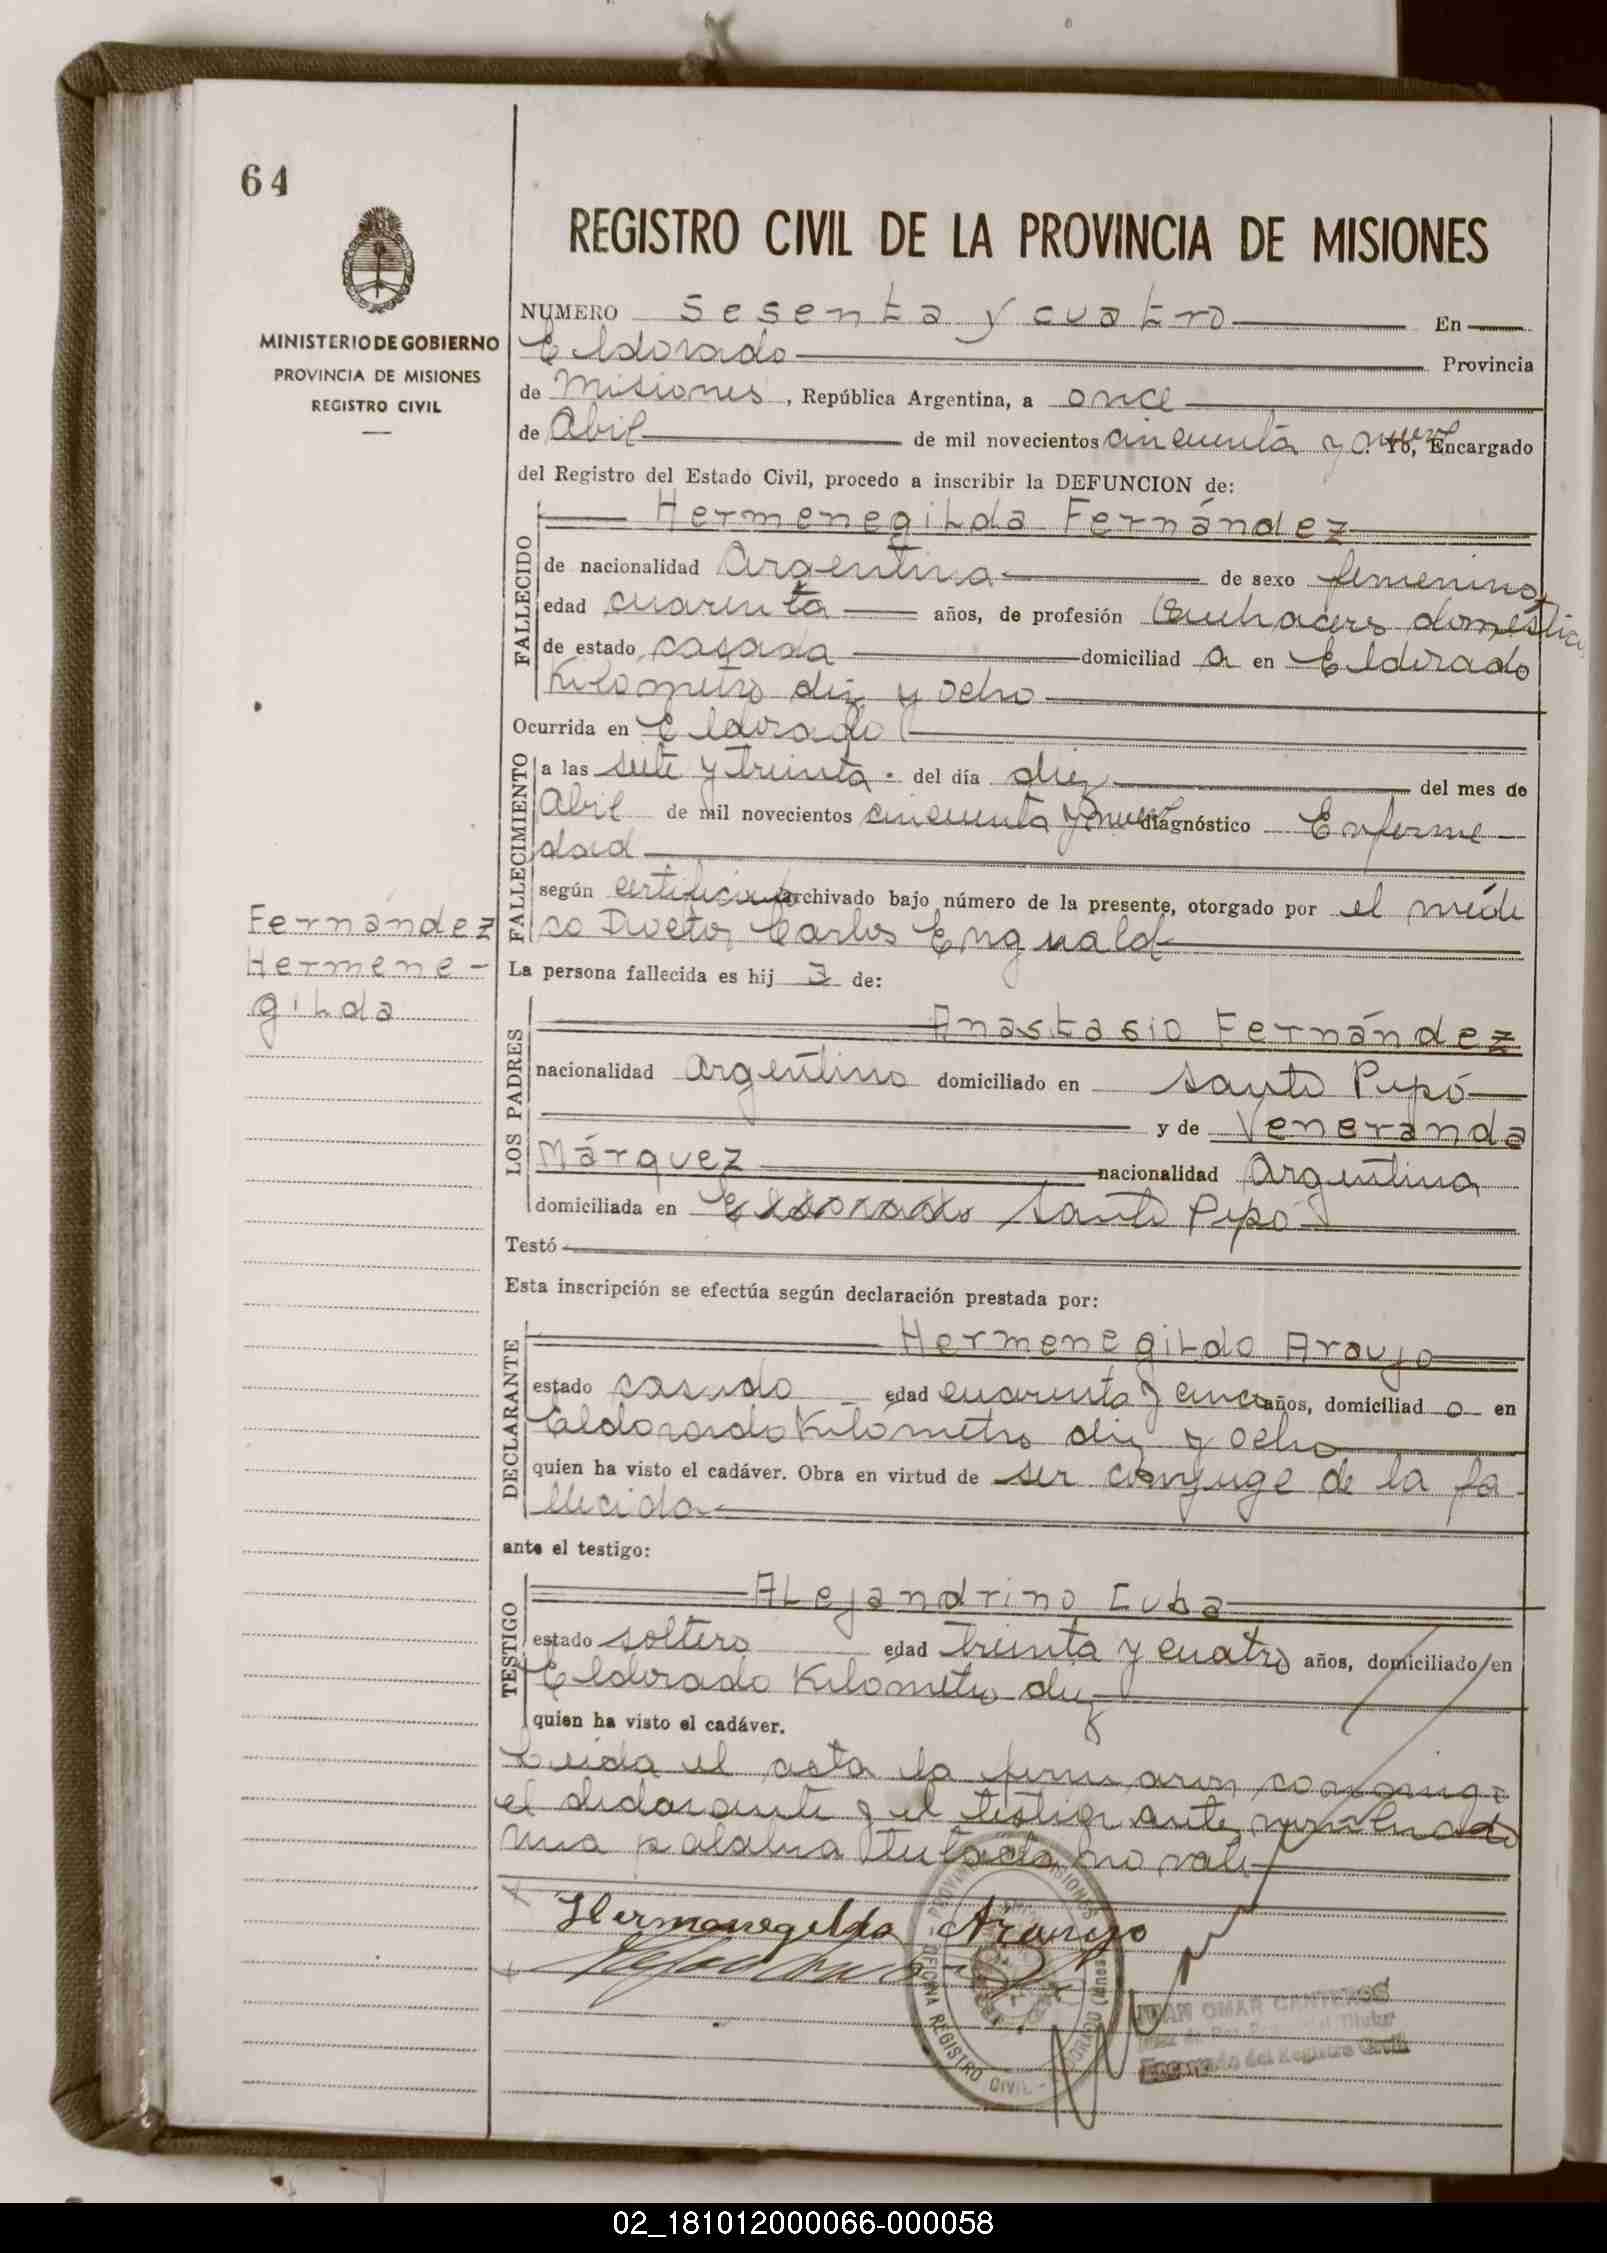 64
MINISTERIO DE GOBIERNO
PROVINCIA DE MISIONES
REGISTRO CIVIL
Fernández
Hermene-
gilda
REGISTRO CIVIL DE LA PROVINCIA DE MISIONES
NUMERO sesenta y cuatro En
Eldorado Provincia
de Misiones, República Argentina, a once
de Abil de mil novecientos cincuenta y nueve Yo, Encargado
del Registro del Estado Civil, procedo a inscribir la DEFUNCION de:
Hermenegilda Fernández
FALLECIDO
de nacionalidad Argentina de sexo femenino
edad cuarenta años, de profesión Quehaceres domésticos
de estado casada domiciliad a en Eldorado
Kilómetro diez y ocho
Ocurrida en Eldorado
FALLECIMIENTO
a las siete y treinta. del día diez del mes de
Abil de mil novecientos cincuenta y nueve diagnóstico Enferme
dad
según certificado archivado bajo número de la presente, otorgado por el médi
co Doctor Carlos Enguald
La persona fallecida es hij a de:
LOS PADRES
Anastasio Fernández
nacionalidad Argentino domiciliado en Santo Pipó
y de Veneranda
Márquez nacionalidad Argentina
domiciliada en Eldorado Santo Pipó
Testó
Esta inscripción se efectúa según declaración prestada por:
DECLARANTE
Hermenegildo Araujo
estado casado edad cuarenta y cinco años, domiciliad o en
Eldorado Kilómetro diez y ocho
quien ha visto el cadáver. Obra en virtud de ser conyuge de la fa
llecida
ante el testigo:
TESTIGO
Alejandrino Cuba
estado soltero edad treinta y cuatro años, domiciliado en
Eldorado Kilómetro diez
quien ha visto el cadáver.
Leida el acta la firmaron conmigo
el declarante y el testigo ante
una palabra testada no vale
Hermenegildo Araujo
PROVINCIA MISIONES
OFICINA REGISTRO CIVIL
JUAN OMAR CANTEROS
Juez de Paz Titular
Encargado del Registro Civil
02_181012000066-000058